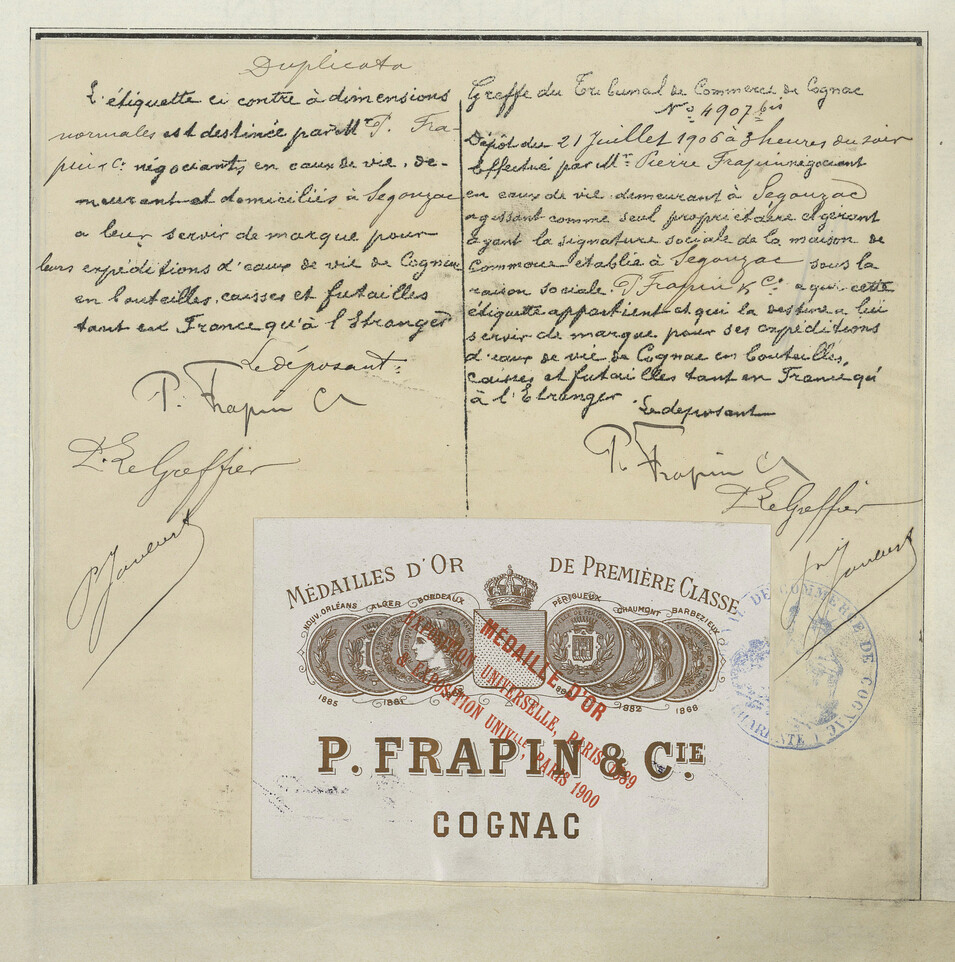 Duplicata
L'étiquette ci contre à dimensions
normales est destinée par Mr P. Fra-
pin & Cie négociants en eaux de vie, de-
meurant et domiciliés à Segonzac
a leur servir de marque pour
leurs expéditions d'eaux de vie de Cognac
en bouteilles, caisses et futailles
tant en France qu'à l'Etranger
Le déposant :
P. Frapin Cie
Pr Le Greffier
Greffe du Tribunal de Commerce de Cognac
No 4907 bis
Dépôt du 21 Juillet 1906 à 3 heures du soir
Effectué par Mr Pierre Frapin négociant
en eaux de vie demeurant à Segonzac
agissant comme seul propriétaire et gérant
ayant la signature sociale de la maison de
Commerce établie à Segonzac sous la
raison sociale P Frapin & Cie a qui cette
étiquette appartient et qui la destine a lui
servir de marque pour ses expéditions
d'eaux de vie de Cognac en bouteilles,
caisses et futailles tant en France qu'
à l'Etranger
Le déposant
P. Frapin Cie
Pr Le Greffier
MÉDAILLES D'OR DE PREMIÈRE CLASSE
NOUV. ORLÉANS ALGER BORDEAUX PÉRIGUEUX CHAUMONT BARBEZIEUX
1885 1881 1882 1868
MÉDAILLE D'OR
EXPOSITION UNIVERSELLE, PARIS 1889
& EXPOSITION UNIVlle, PARIS 1900
P. FRAPIN & CIE
COGNAC
DE COMMERCE DE COGNAC
CHARENTE